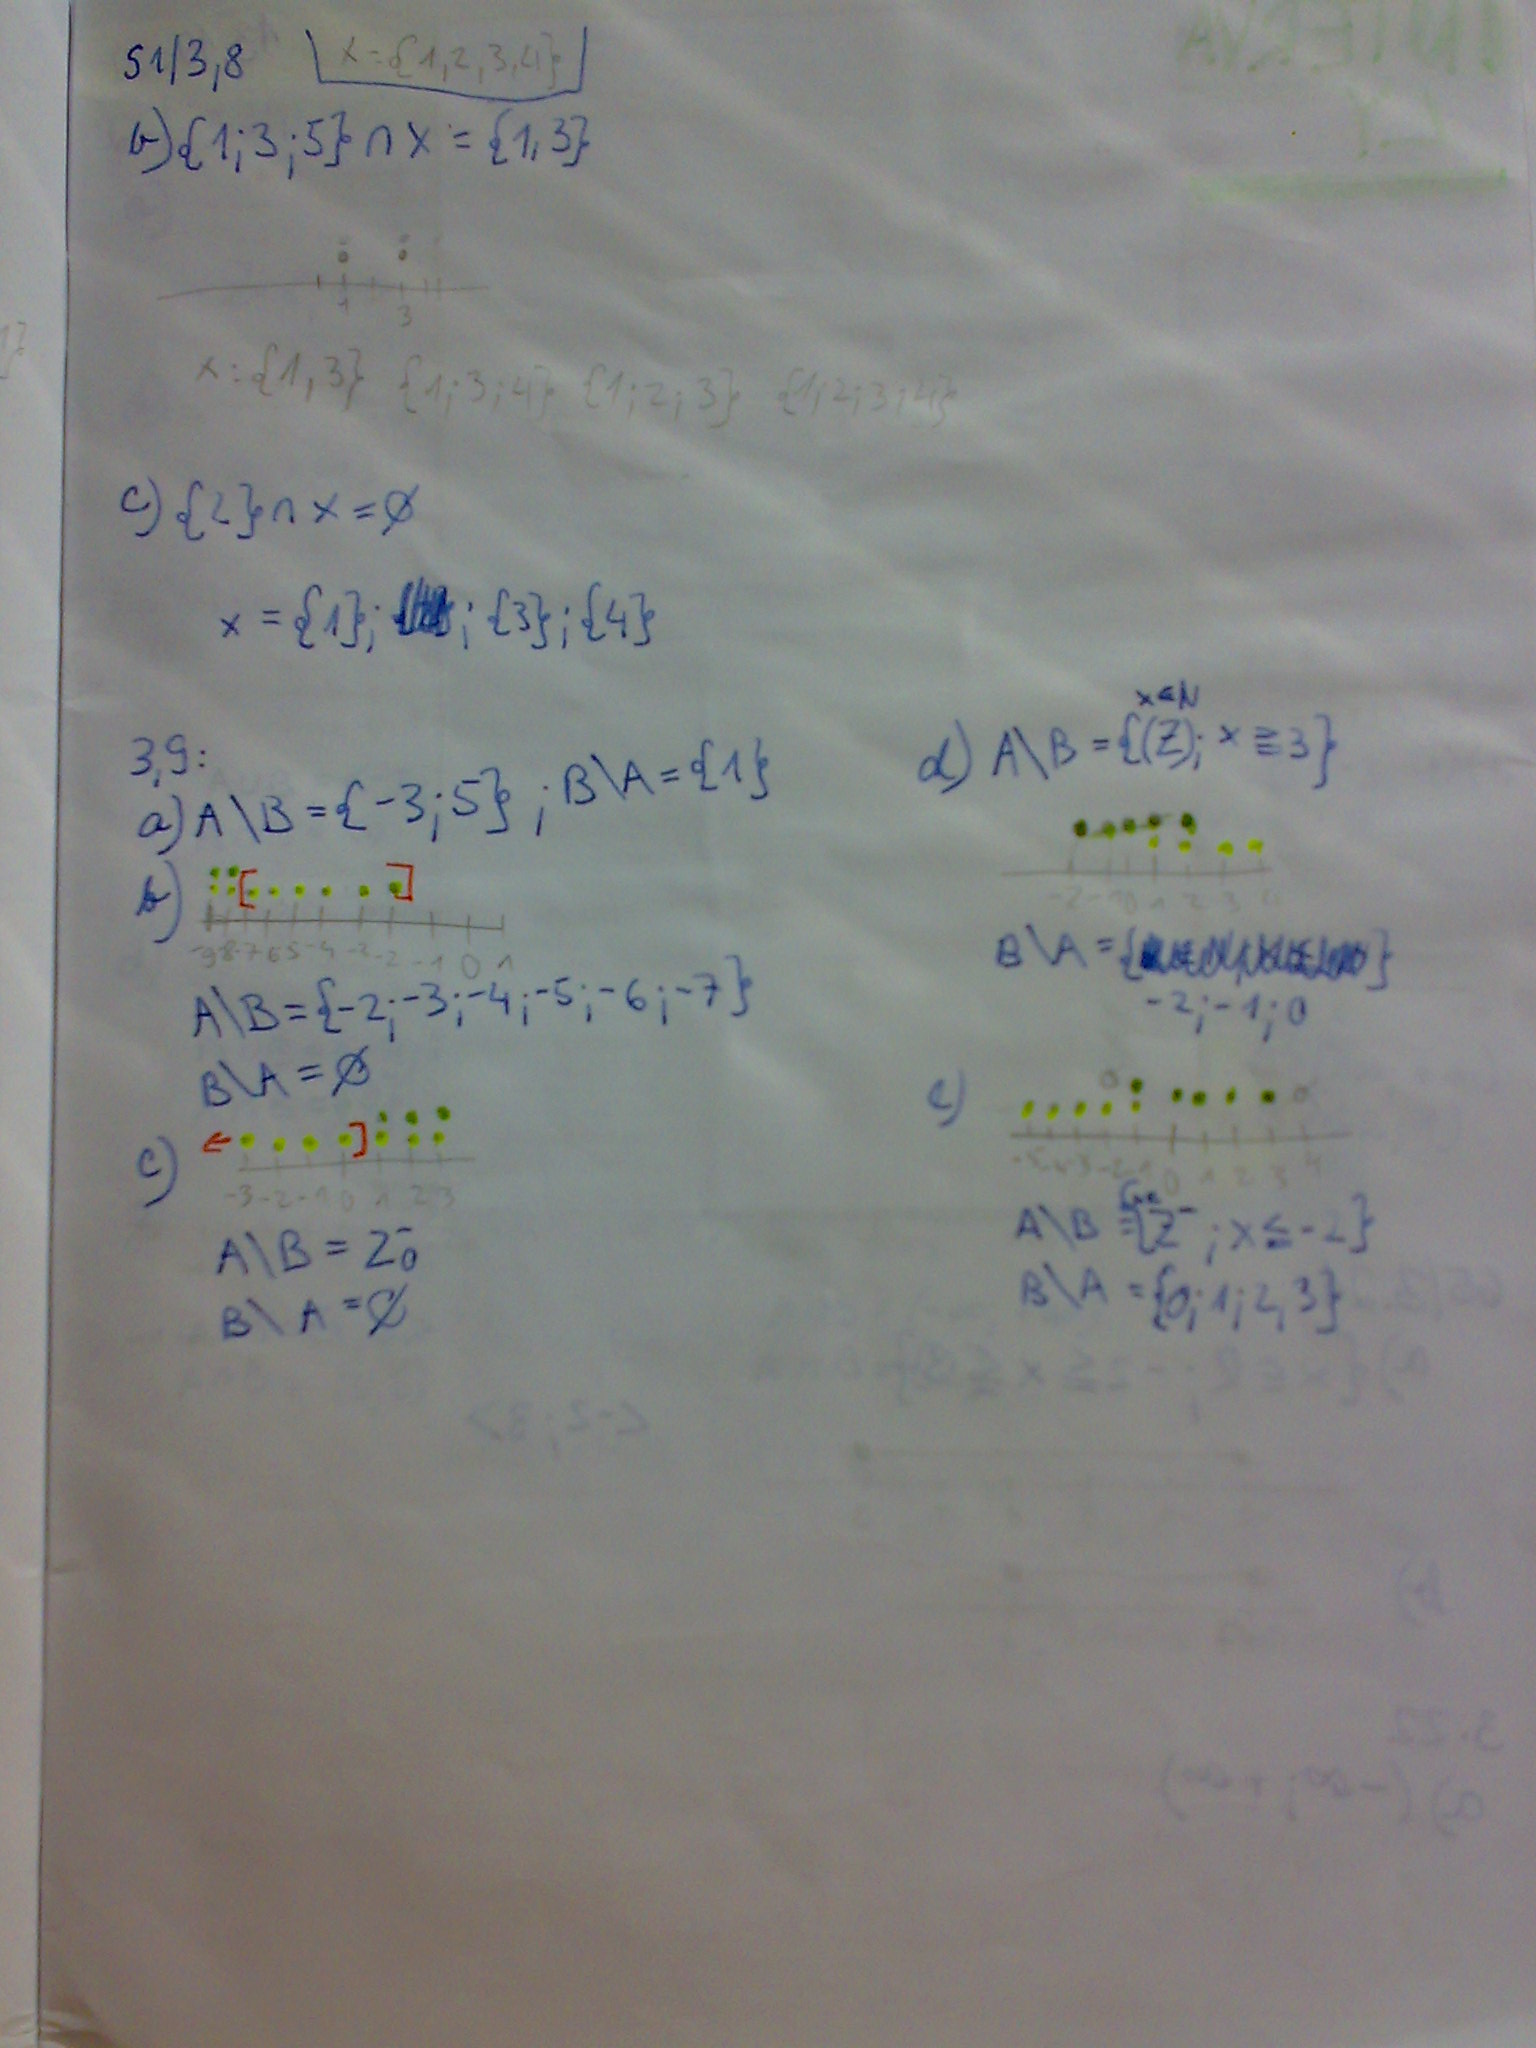 51/3,8 x={1,2,3,4}
b) {1;3;5} ∩ x = {1,3}
1 3
x={1,3} {1;3;4} {1;2;3} {1;2;3;4}
c) {2} ∩ x = ∅
x = {1}; ; {3}; {4}
3,9:
a) A\B = {-3;5} ; B\A = {1}
b)
-9 -8 -7 -6 -5 -4 -2 -2 -1 0 1
A\B = {-2;-3;-4;-5;-6;-7}
B\A = ∅
c)
-3 -2 -1 0 1 2 3
A\B = Z₀⁻
B\A = ∅
x∈N
d) A\B = {(Z); x ≧ 3}
-2 -1 0 1 2 3 4
B\A = { }
-2;-1;0
e)
-5 -4 -3 -2 -1 0 1 2 3 4
A\B = {Z⁻; x ≦ -2}
B\A = {0;1;2,3}